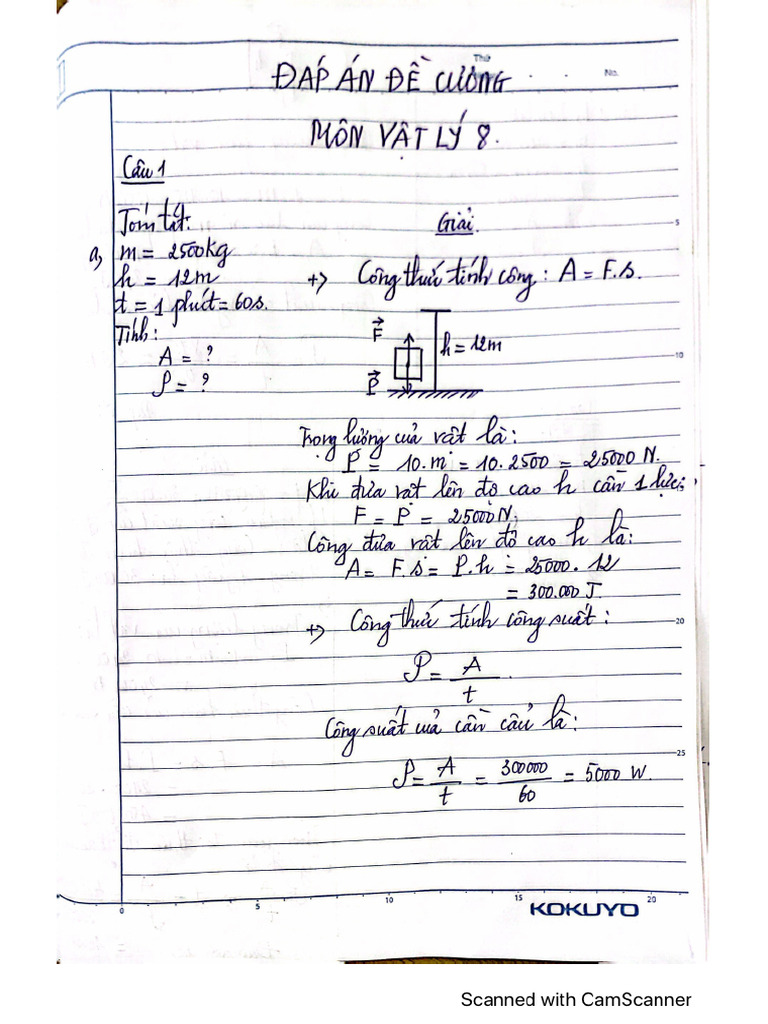 Thứ
No.
ĐÁP ÁN ĐỀ CƯƠNG
MÔN VẬT LÝ 8.
Câu 1
Tóm tắt:
Giải.
a, m = 2500kg
h = 12m
+> Công thức tính công: A = F.s.
t = 1 phút = 60s.
Tính:
A = ?
P = ?
F
h = 12m
P
Trọng lượng của vật là:
P = 10.m = 10.2500 = 25000 N.
Khi đưa vật lên độ cao h cần 1 lực:
F = P = 25000N.
Công đưa vật lên độ cao h là:
A = F.s = P.h = 25000.12
= 300.000 J.
+> Công thức tính công suất:
P = A/t
Công suất của cần cẩu là:
P = A/t = 300000/60 = 5000 W.
5
10
20
25
0 5 10 15 20
KOKUYO
Scanned with CamScanner